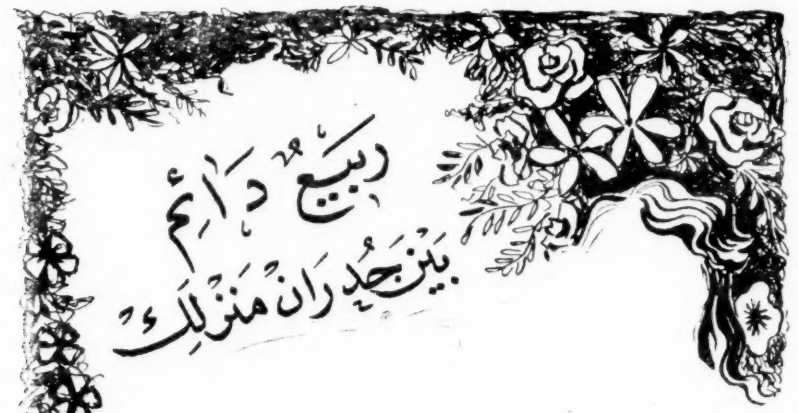 رَبيعٌ دَائِم
بَيْن جُدرَانْ مَنزلِك